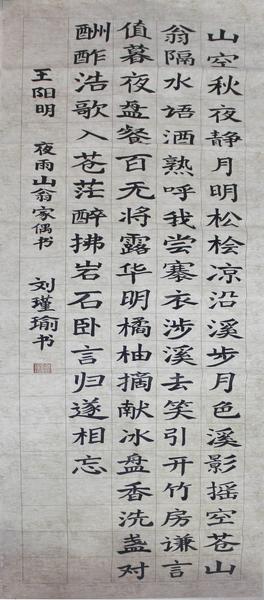 山空秋夜静月明松桧凉沿溪步月色溪影摇空苍山
翁隔水语酒熟呼我尝褰衣涉溪去笑引开竹房谦言
值暮夜盘餐百无将露华明橘柚摘献冰盘香洗盏对
酬酢浩歌入苍茫醉拂岩石卧言归遂相忘
王阳明 夜雨山翁家偶书 刘瑾瑜书